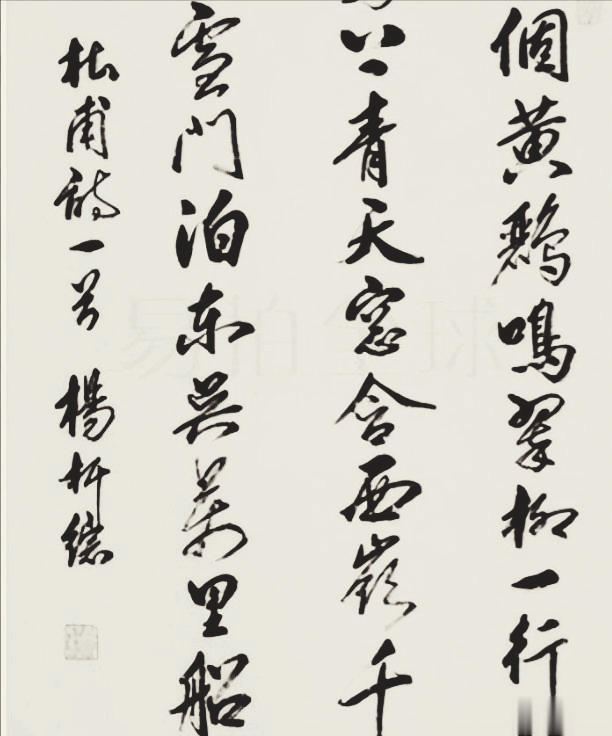 個黄鸝鳴翠柳一行
上青天窓含西嶺千
雪門泊东吴萬里船
杜甫詩一首 楊析綜
易拍全球